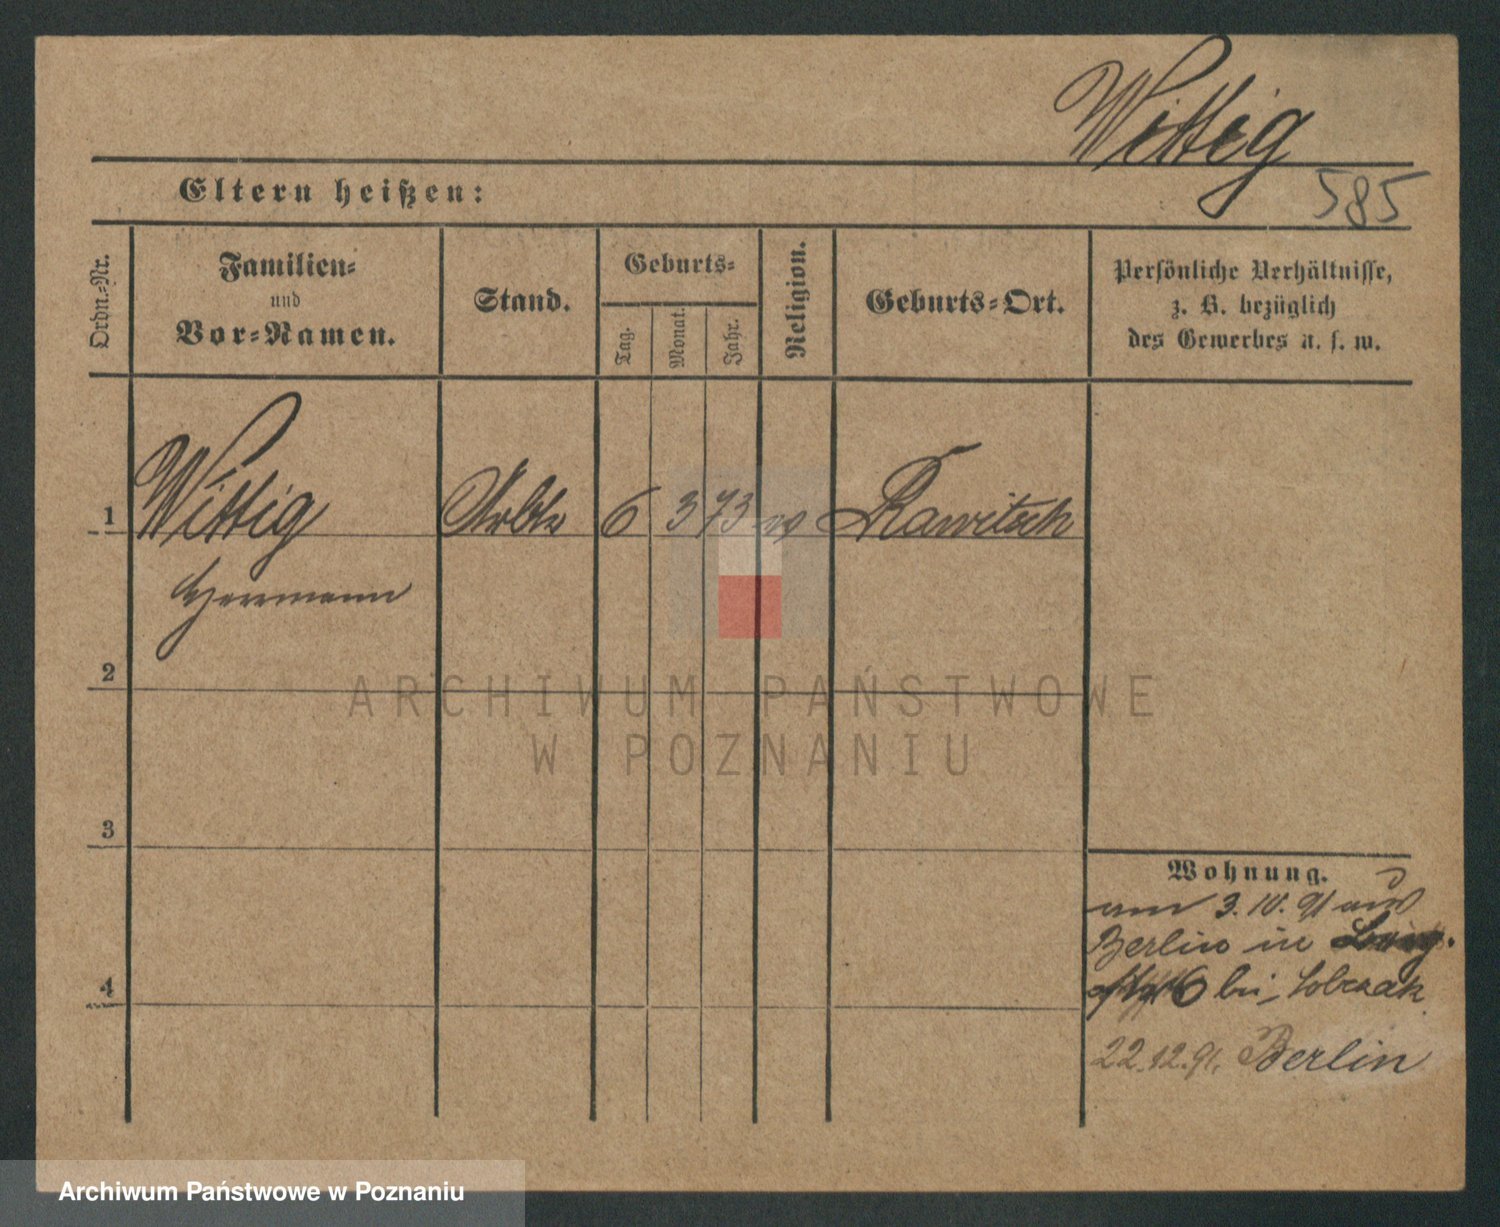 Wittig
585
Eltern heißen:
Ordn.-Nr.
Familien-
und
Vor-Namen.
Stand.
Geburts-
Tag.
Monat.
Jahr.
Religion.
Geburts-Ort.
Persönliche Verhältnisse,
z. B. bezüglich
des Gewerbes u. s. w.
1
Wittig
Arbtr
6
3
73
Rawitsch
Herrmann
2
ARCHIWUM PAŃSTWOWE
W POZNANIU
3
4
Wohnung.
am 3.10.91 aus
Berlin in
6 bei Sobczak
22.12.91. Berlin
Archiwum Państwowe w Poznaniu